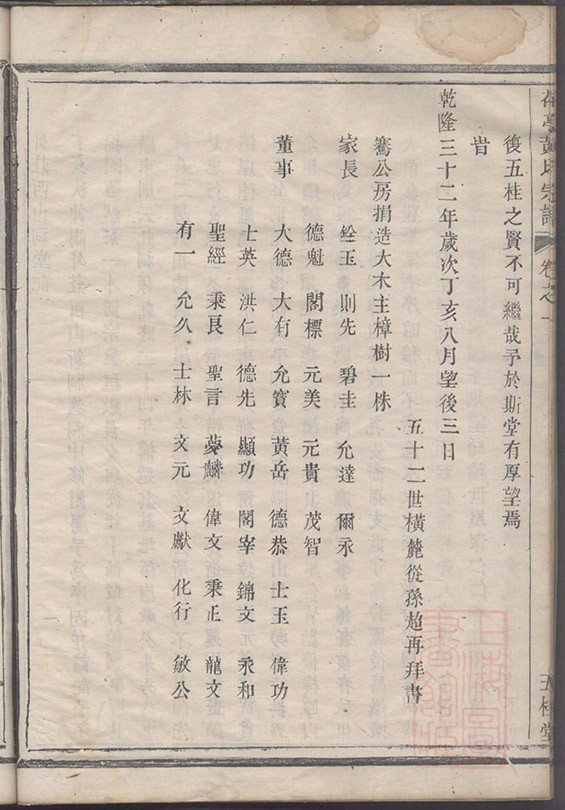 復五桂之賢不可繼哉予於斯堂有厚望焉
旹
乾隆三十二年歲次丁亥八月望後三日
五十二世橫麓從孫超再拜書
騫公房捐造大木主樟樹一株
家長 銓玉 則先 碧圭 允達 爾永
德魁 閣標 元美 元貴 茂智
董事 大德 大有 允寶 黃岳 德恭 士玉 偉功
士英 洪仁 德先 顯功 閣宰 錦文 永和
聖經 秉良 聖言 夢麟 偉文 秉正 龍文
有一 允久 士林 文元 文獻 化行 敏公
氏宗譜 卷之一
五桂堂